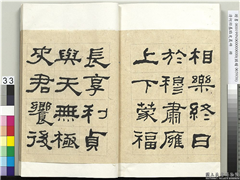 相樂終日
於穆肅雍
上下蒙福
長享利貞
與天無極
史君饗後
33